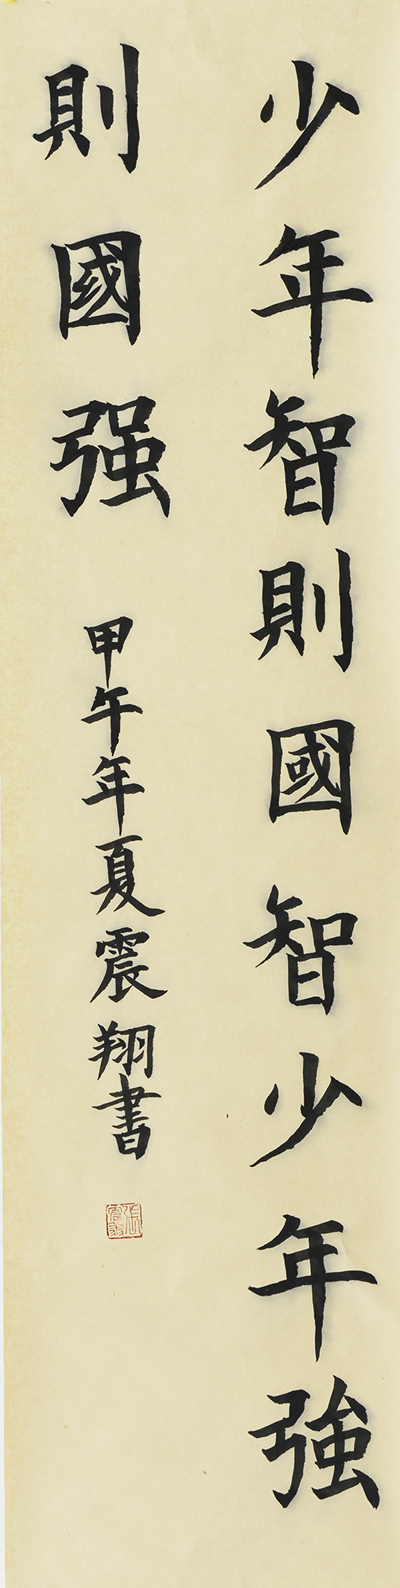 少年智則國智少年強
則國强
甲午年夏震翔書